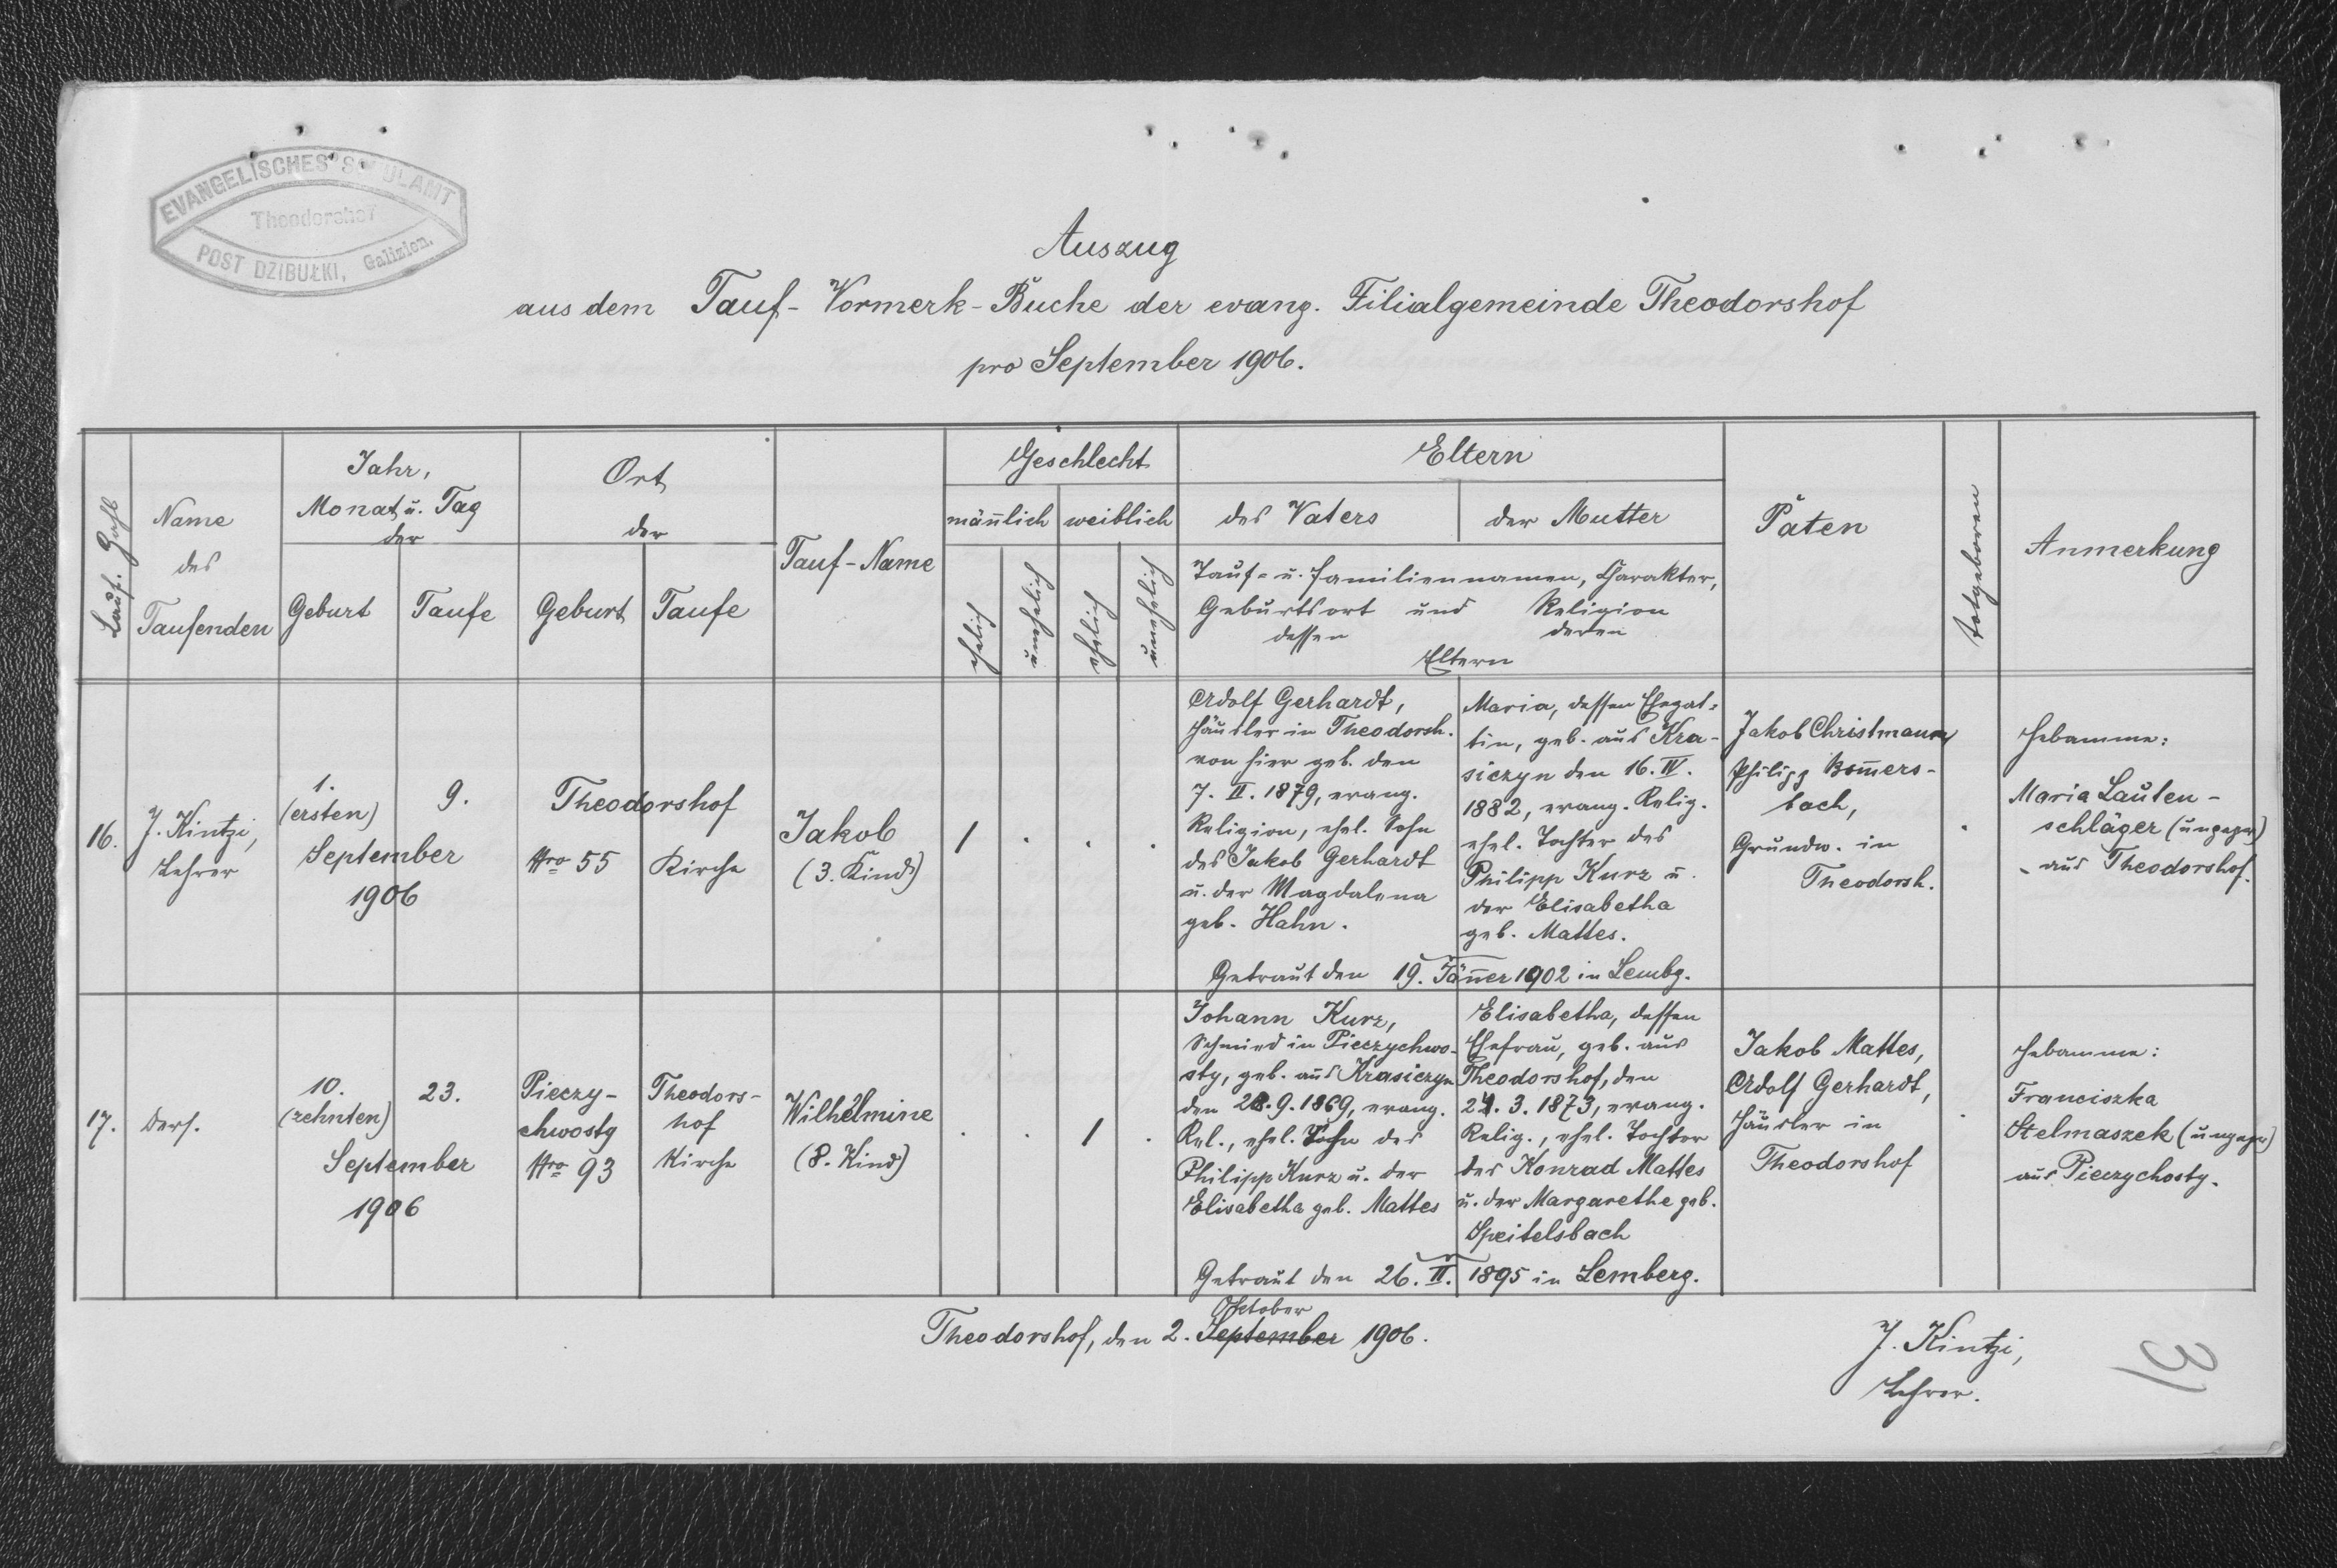 EVANGELISCHES SCHULAMT
Theodorshof
POST DZIBUŁKI, Galizien.
Auszug
aus dem Tauf-Vormerk-Buche der evang. Filialgemeinde Theodorshof
pro September 1906.
Lauf. Zahl
Name
des
Taufenden
Jahr,
Monat u. Tag
der
Geburt
Taufe
Ort
der
Geburt
Taufe
Tauf-Name
Geschlecht
männlich
weiblich
ehelich
unehelich
ehelich
unehelich
Eltern
des Vaters
der Mutter
Tauf- u. Familiennamen, Charakter,
Geburtsort und Religion
dessen
deren
Eltern
Paten
totgeboren
Anmerkung
16.
J. Kintzi,
Lehrer
1.
(ersten)
9.
September
1906
Theodorshof
Nro 55
Kirche
Jakob
(3. Kind)
1
Adolf Gerhardt,
Häusler in Theodorsh.
von hier geb. den
7. II. 1879, evang.
Religion, ehel. Sohn
des Jakob Gerhardt
u. der Magdalena
geb. Hahn.
Maria, dessen Ehegat-
tin, geb. aus Kra-
siczyn den 16. IV.
1882, evang. Relig.
ehel. Tochter des
Philipp Kurz u.
der Elisabetha
geb. Mattes.
Getraut den 19. Jänner 1902 in Lembg.
Jakob Christmann
Philipp Bom̄ers-
bach,
Grundw. in
Theodorsh.
Hebamme:
Maria Lauten-
schläger (ungepr)
aus Theodorshof.
17.
Ders.
10.
(zehnten)
23.
September
1906
Pieczy-
chwosty
Nro 93
Theodors-
hof
Kirche
Wilhelmine
(8. Kind)
1
Johann Kurz,
Schmied in Pieczychwo-
sty, geb. aus Krasiczyn
den 28.9.1869, evang.
Rel., ehel. Sohn des
Philipp Kurz u. der
Elisabetha geb. Mattes
Elisabetha, dessen
Ehefrau, geb. aus
Theodorshof, den
3. 1873, evang.
Relig., ehel. Tochter
des Konrad Mattes
u. der Margarethe geb.
Speitelsbach
Getraut den 26. II. 1895 in Lemberg.
Jakob Mattes,
Adolf Gerhardt,
Häusler in
Theodorshof
Hebamme:
Franciszka
Stelmaszek (ungepr)
aus Pieczychosty.
Oktober
Theodorshof, den 2. September 1906.
J. Kintzi,
Lehrer.
31